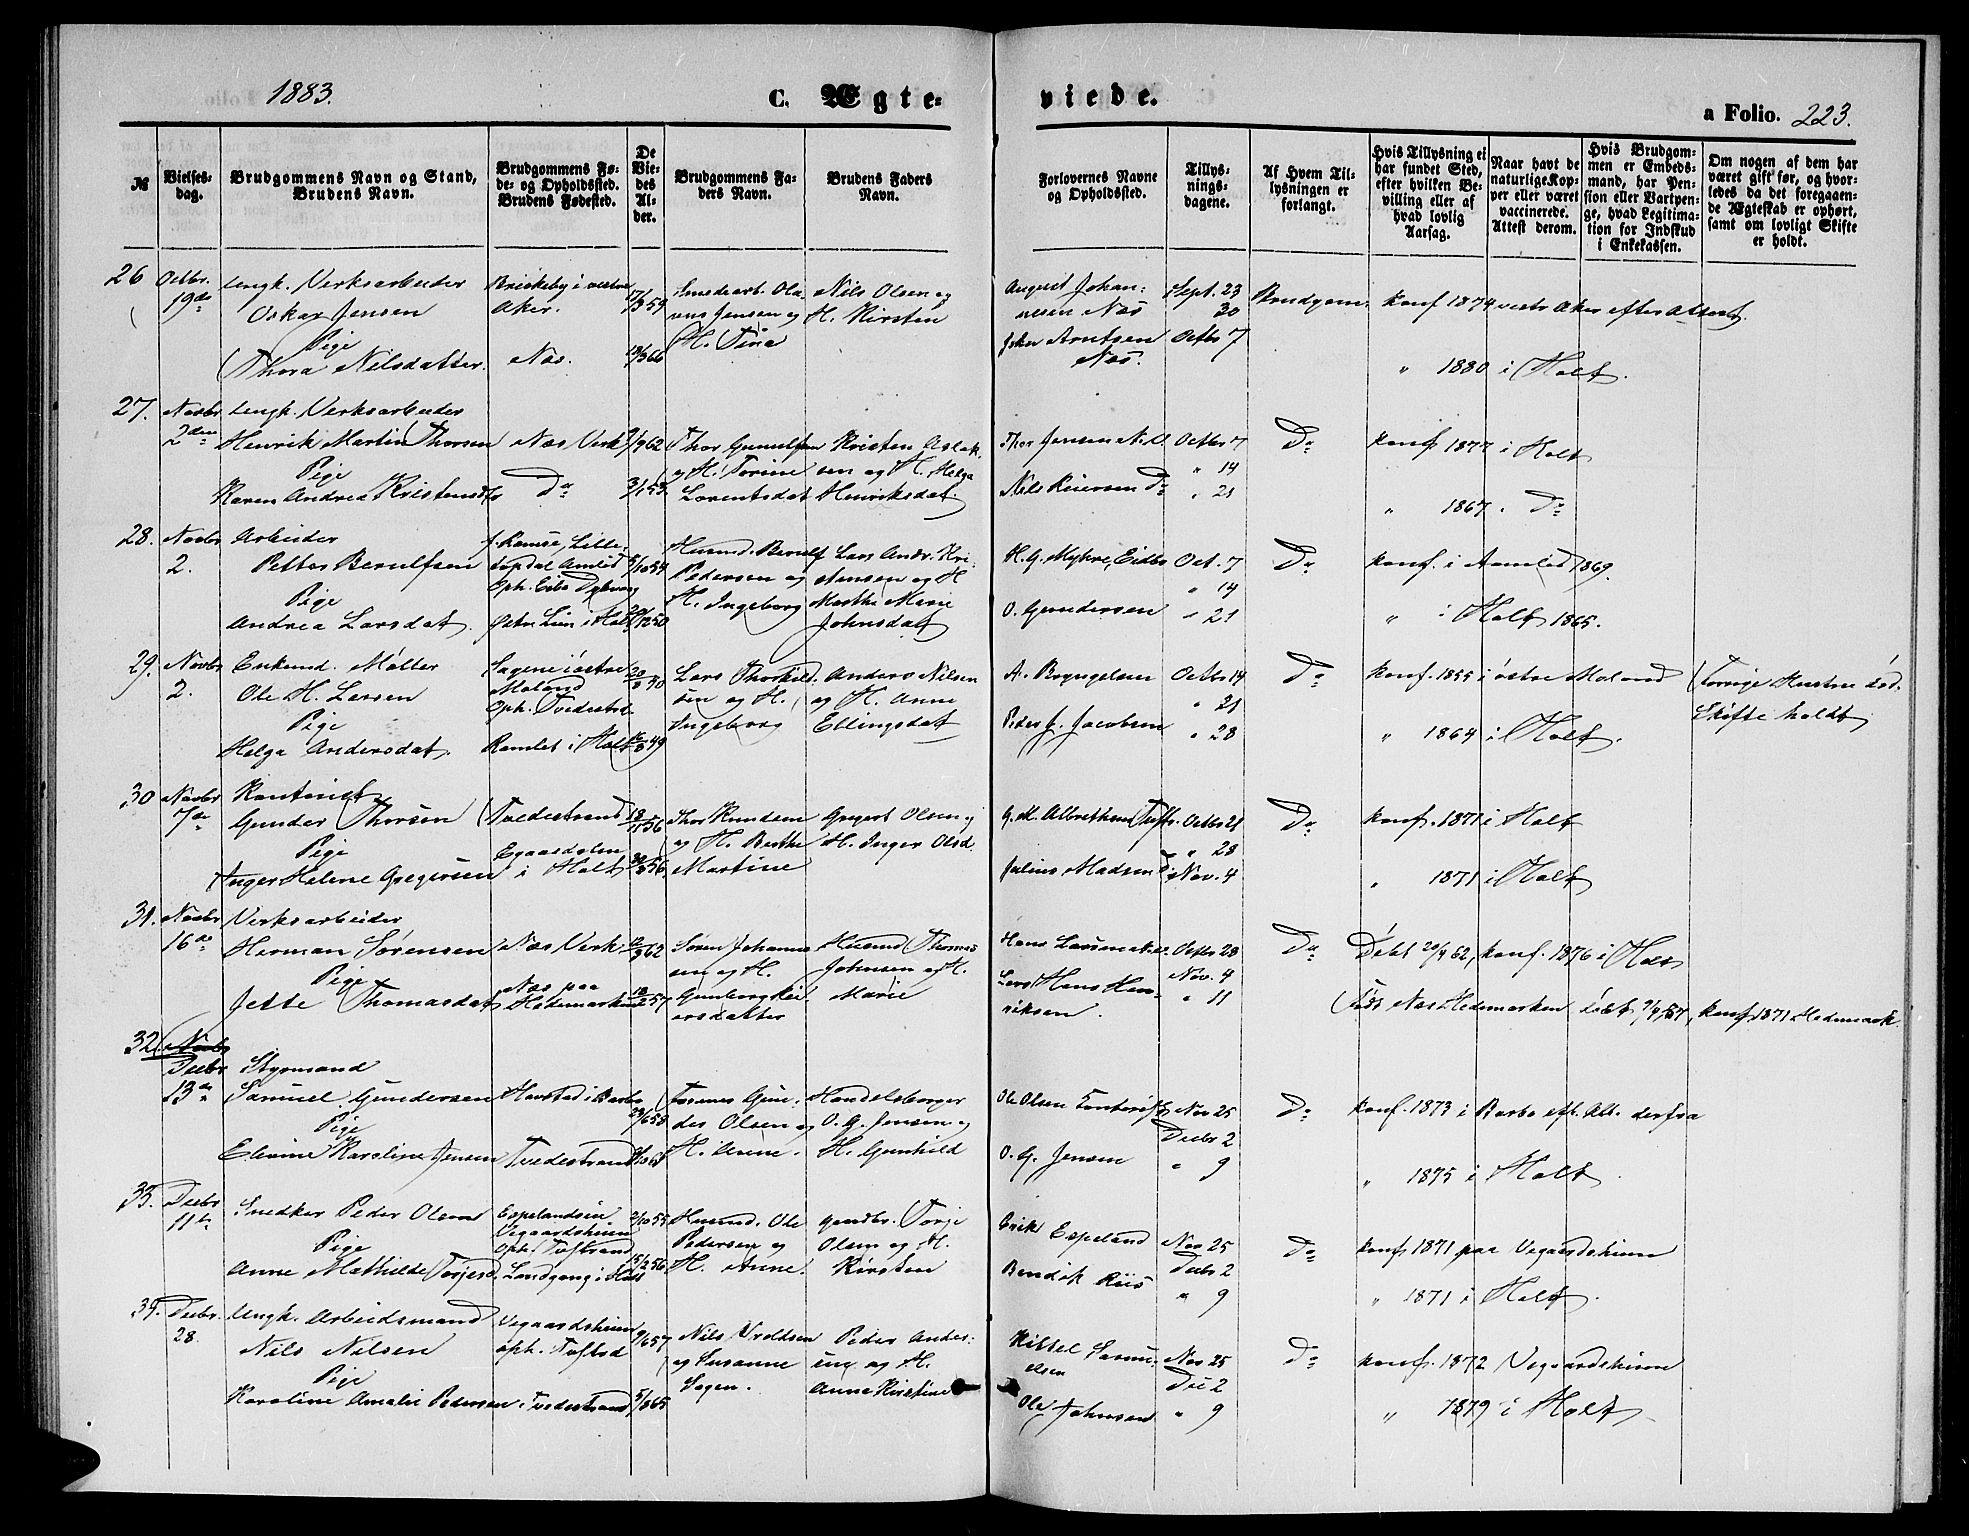 1883.
C. Ægte=
viede.
a Folio. 223.
№
Vielses-
dag.
Brudgommens Navn og Stand,
Brudens Navn.
Brudgommens Fø-
de- og Opholdssted.
Brudens Fødested.
De
Vie-
des
Al-
der.
Brudgommens Fa-
ders Navn.
Brudens Faders
Navn.
Forlovernes Navne
og Opholdssted.
Tillys-
nings-
dagene.
Af Hvem Til-
lysningen er
forlangt.
Hvis Tillysning ei
har fundet Sted,
efter hvilken Be-
villing eller af
hvad lovlig
Aarsag.
Naar havt de
naturlige Kop-
per eller været
vaccinerede.
Attest derom.
Hvis Brudgom-
men er Embeds-
mand, har Pen-
sion eller Vartpen-
ge, hvad Legitima-
tion for Indskud
i Enkekassen.
Om nogen af dem har
været gift før, og hvor-
ledes da det foregaaen-
de Ægteskab er ophørt,
samt om lovligt Skifte
er holdt.
26 Octbr. 19de
Ungk. Verksarbeider
Oskar Jensen
Pige
Thora Nilsdatter.
Briskeby i vestre
Aker.
Næs.
17/3 59
Smedearb. Ola-
vus Jensen og
H. Tina
Nils Olsen og
H. Kirsten
August Johan-
nesen Næs
John Arntsen
Næs.
Sept. 23
30
Octbr 7
Brudgom.
konf 1874 vestr Aker efter Attest
" 1880 i Holt.
27. Novbr 2den
Ungk. Verksarbeider
Henrik Martin Thorsen
Pige
Karen Andrea Kristensd
Næs Verk
Do
Thor Gunulfsen
og H. Torine
Lorentsdat
Kristen Aslak-
sen og H. Helga
Henriksdat.
Thor Jensen N.V.
Nils Reiersen Do
Octbr 7
" 14
" 21
Do
konf 1877 i Holt
" 1867 " Do
28. Novbr 2.
Arbeider
Petter Berulfsen
Pige
Andrea Larsdat.
Amlid
Oph. Eibo Dybvaag
Østre Lien i Holt
Husmd. Berulf
Pedersen og
H. Ingeborg
Lars Andr. Kri-
stensen og H
Marthe Marie
Johnsdat
H. G. Myhre, Eidbo
O. Gundersen
Oct. 7
" 14
" 21
Do
konf. i Aamlid 1869.
" i Holt 1865.
29. Novbr 2.
Enkemd. Møller
Ole H. Larsen
Pige
Helga Andersdat.
Sagene i østre
Moland
Oph. Tvedestrd
Ramlet i Holt
Lars Thorkild-
sen og H.
Ingeborg
Anders Nilsen
og H. Anne
Ellingsdat
Peder J. Jacobsen
Octbr 14
" 21
" 28
Do
konf. 1855 i østre Moland
" 1864 i Holt.
Forrige Hustru død.
Skifte holdt
30 Novbr 7de
Kontorist
Gunder Thorsen
Pige
Inger Helene Gregersen
Tvedestrand
Egaasdalen
i Holt
18/11 56
Thor Knudsen
og H. Berthe
Martine
Gregert Olsen og
H. Inger Olsd.
G. M. Albrethsen
Julius Madsen
Octbr 21
" 28
Nov. 4
Do
konf. 1871 i Holt
" 1871 i Holt
31. Novbr 16de
Verksarbeider
Herman Sørensen
Pige
Jette Thomasdat
Næs Verk
Næs paa
Hedemarken
Søren Johanne-
sen og H.
Gunborg Rei-
ersdatter
Husmd Thomas
Johnsen og H.
Marie
Hans Larsen
Lars Hans Hen-
riksen.
Octbr 28
Nov. 4
" 11
Do
Døbt 20/4 62, konf. 1876 i Holt
Født Næs Hedemarken døbt 9/4 57, konf 1871 Hedemark.
32. Novbr
Decbr 13de
Styrmand
Samuel Gundersen
Pige
Elevine Karoline Jensen
Havstad i Barbo
Tvedestrand
23/6 58
Gun-
der Olsen og
H. Anne.
Handelsborger
O. G. Jensen og
H. Gunhild
Ole Olsen
O. G. Jensen
Nov 25
Decbr 2
" 9
Do
konf. 1873 i Barbo eft. Att. derfra
" 1875 i Holt.
33. Decbr 11te
Snedker Peder Olsen
Pige
Anne Mathilde Torjesd.
Espelandseie
Vegaardsheien
oph. Tvedstrand
Landgang i Holt
2/10 55
15/2 56
Husmd. Ole
Pedersen og
H. Anne.
Gaardbr. Torje
Olsen og H.
Kirsten
Erik Espeland
Bendik Riis
Nov 25
Decbr 2
" 9
Do
konf 1871 paa Vegaardsheien
" 1871 i Holt.
34. Decbr 28.
Ungk. Arbeidsmand
Nils Nilsen
Pige
Karoline Amalie Pedersen
Vegaardsheien
oph. Tvedstd
Tvedestrand
9/6 57
Nils Uroldsen
og Susanne
Sagen.
Peder Ander-
sen og H.
Anna Kirstine
Kittel Samu-
elsen
Ole Johnsen
Nov 25
Dec 2
" 9
Do
konf. 1872 Vegaardsheien
" 1879 i Holt